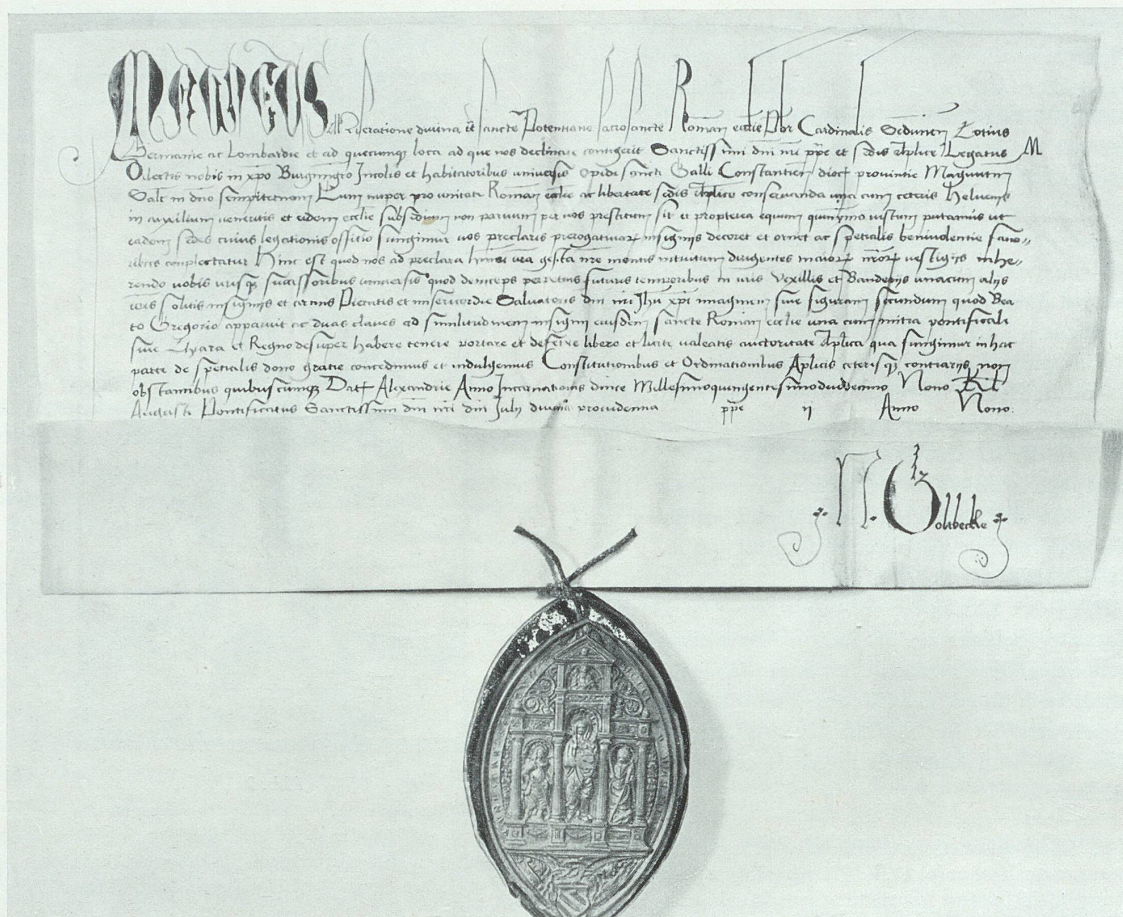 Matheus Miseratione divina tt̃ sancte Potentiane sacrosancte Romañ eccl̃ie Pbr̃ Cardinalis Sedunen̄ Totius
Germanie ac Lombardie et ad quecumqʒ loca ad que nos declinare contigerit Sanctissimi dñi nr̃i pp̃e et sedis apl̃ice Legatus
Dilectis nobis in xp̃o Incolis et habitatoribus universis opidi sancti Galli Constantien̄ dioc̄ provintie Maguntin̄
Salt̃ in dño sempiternam Cum nuper pro unitate Romañ eccl̃ie ac libertate sedis apl̃ice conservanda cum ceteris
in auxilium veneritis et eidem eccl̃ie subsidium non parvum per vos prestitum sit et propterea equum quinymo iustum putamus ut
eadem sedes cuius legationis offitio fungimur vos preclaris prerogativarꝫ insignijs decoret et ornet ac spetialis benivolentie favo-
ribus complectatur Hinc est quod nos ad preclara vr̃a gesta nr̃e mentis intuitum dirigentes maiorꝫ nr̃orꝫ vestigijs inhe-
rendo vobis vr̃isqʒ successoribus universis quod deinceps perpetuis futuris temporibus in vr̃is Vexillis et Banderijs unacum alijs
vr̃is solitis insignijs et armis Pietatis et misericordie Salvatoris dñi nr̃i Jhũ xp̃i imaginem sive figuram secundum quod Bea
to Gregorio apparuit ac duas claves ad similitudinem insignij eiusdem sancte Romañ eccl̃ie una cum mitra pontificali
sive Thyara et Regno desuper habere tenere portare et deferre libere et licite valeatis auctoritate Apl̃ica qua fungimur in hac
parte de spetialis dono gratie concedimus et indulgemus Constitutionibus et Ordinationibus Apl̃icis ceterisqʒ contrarijs non
obstantibus quibuscumqʒ Dat̃ Alexandrie Anno Incarnationis dñice Millesimoquingentesimoduodecimo Nono Kal̃
Augusti Pontificatus Sanctissimi dñi nr̃i dñi Julij divina providentia pp̃e ii Anno Nono.
N. Goltbeckle